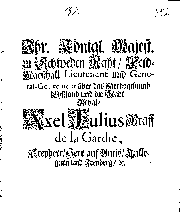 Ihr. Königl. Majest.
zu Schweden Raht / Feld-
Marschall Lieutenant und Gene-
ral-Gouverneur über das Hertzogthumb
Ehstland und die Stadt
Reval /
Axel Julius Graff
de la Gardie,
Freyherr / Herr auf
und &c.